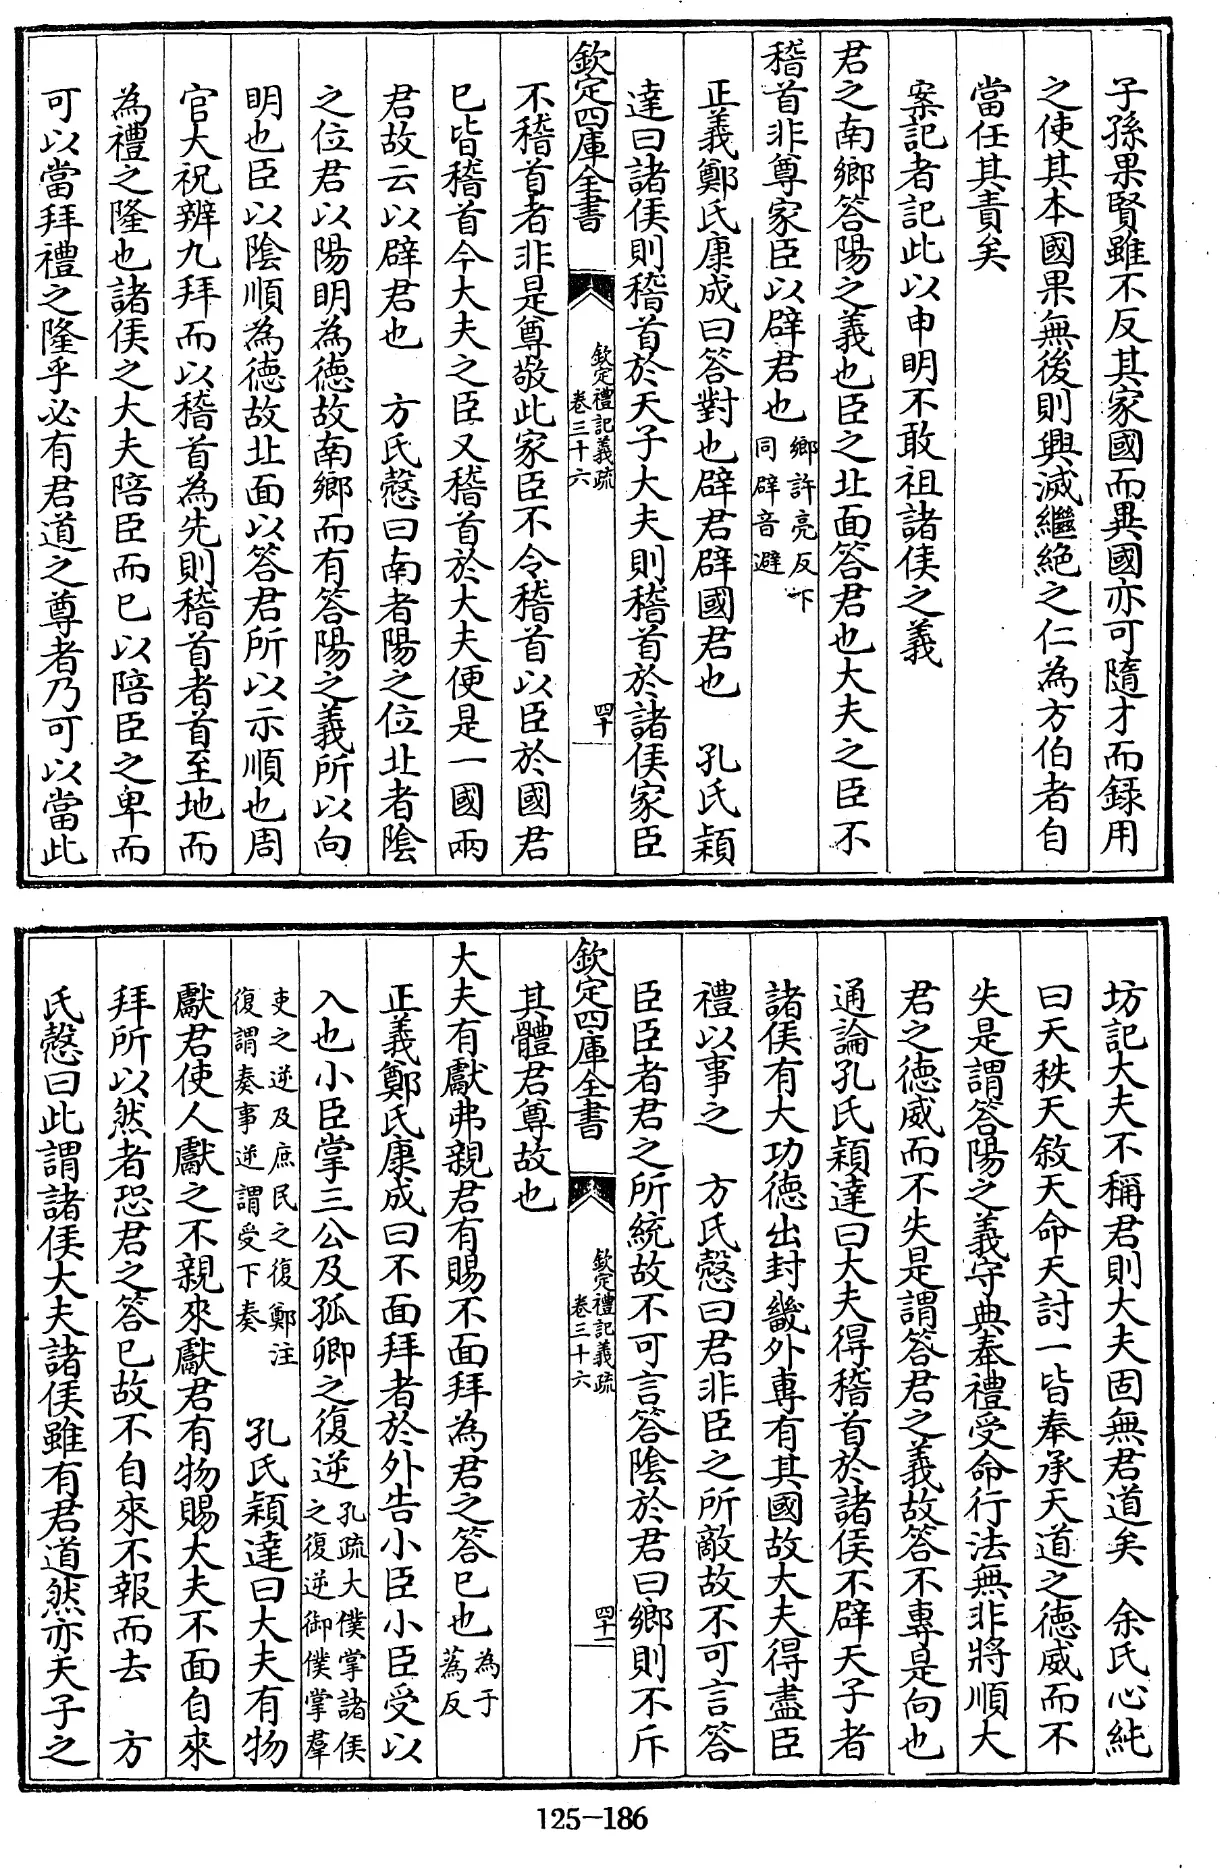 子孫果賢雖不反其家國而異國亦可隨才而録用
之使其本國果無後則興滅繼絶之仁為方伯者自
當任其責矣
案記者記此以申明不敢祖諸侯之義
君之南鄉答陽之義也臣之北面答君也大夫之臣不
稽首非尊家臣以辟君也鄉許亮反下
同辟音避
正義鄭氏康成曰答對也辟君辟國君也　孔氏穎
達曰諸侯則稽首於天子大夫則稽首於諸侯家臣
欽定四庫全書
欽定禮記義疏
卷三十六
四十
不稽首者非是尊敬此家臣不令稽首以臣於國君
已皆稽首今大夫之臣又稽首於大夫便是一國兩
君故云以辟君也　方氏慤曰南者陽之位北者陰
之位君以陽明為德故南鄉而有答陽之義所以向
明也臣以陰順為德故北面以答君所以示順也周
官大祝辨九拜而以稽首為先則稽首者首至地而
為禮之隆也諸侯之大夫陪臣而已以陪臣之卑而
可以當拜禮之隆乎必有君道之尊者乃可以當此
坊記大夫不稱君則大夫固無君道矣　余氏心純
曰天秩天敘天命天討一皆奉承天道之德威而不
失是謂答陽之義守典奉禮受命行法無非將順大
君之德威而不失是謂答君之義故答不專是向也
通論孔氏穎達曰大夫得稽首於諸侯不辟天子者
諸侯有大功德出封畿外專有其國故大夫得盡臣
禮以事之　方氏慤曰君非臣之所敵故不可言答
臣臣者君之所統故不可言答陰於君曰鄉則不斥
欽定四庫全書
欽定禮記義疏
卷三十六
四十一
其體君尊故也
大夫有獻弗親君有賜不面拜為君之答已也為于
蒍反
正義鄭氏康成曰不面拜者於外告小臣小臣受以
入也小臣掌三公及孤卿之復逆孔疏大僕掌諸侯
之復逆御僕掌羣
吏之逆及庶民之復鄭注
復謂奏事逆謂受下奏　孔氏穎達曰大夫有物
獻君使人獻之不親來獻君有物賜大夫不面自來
拜所以然者恐君之答已故不自來不報而去　方
氏慤曰此謂諸侯大夫諸侯雖有君道然亦天子之
125-186